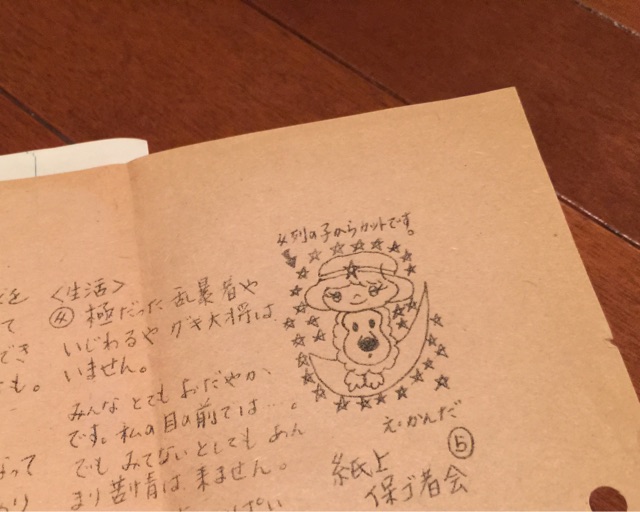 女列の子からカットです。
え:かんだ
⑤
紙上
保ゴ者会
<生活>
女 極だった乱暴者や
いじわるや ガキ大将は
いません。
みんな とても おだやか、
です。私の目の前では…。
でも みてないとしても あん
まり苦情は 来ません。
を
て
でき
も。
って